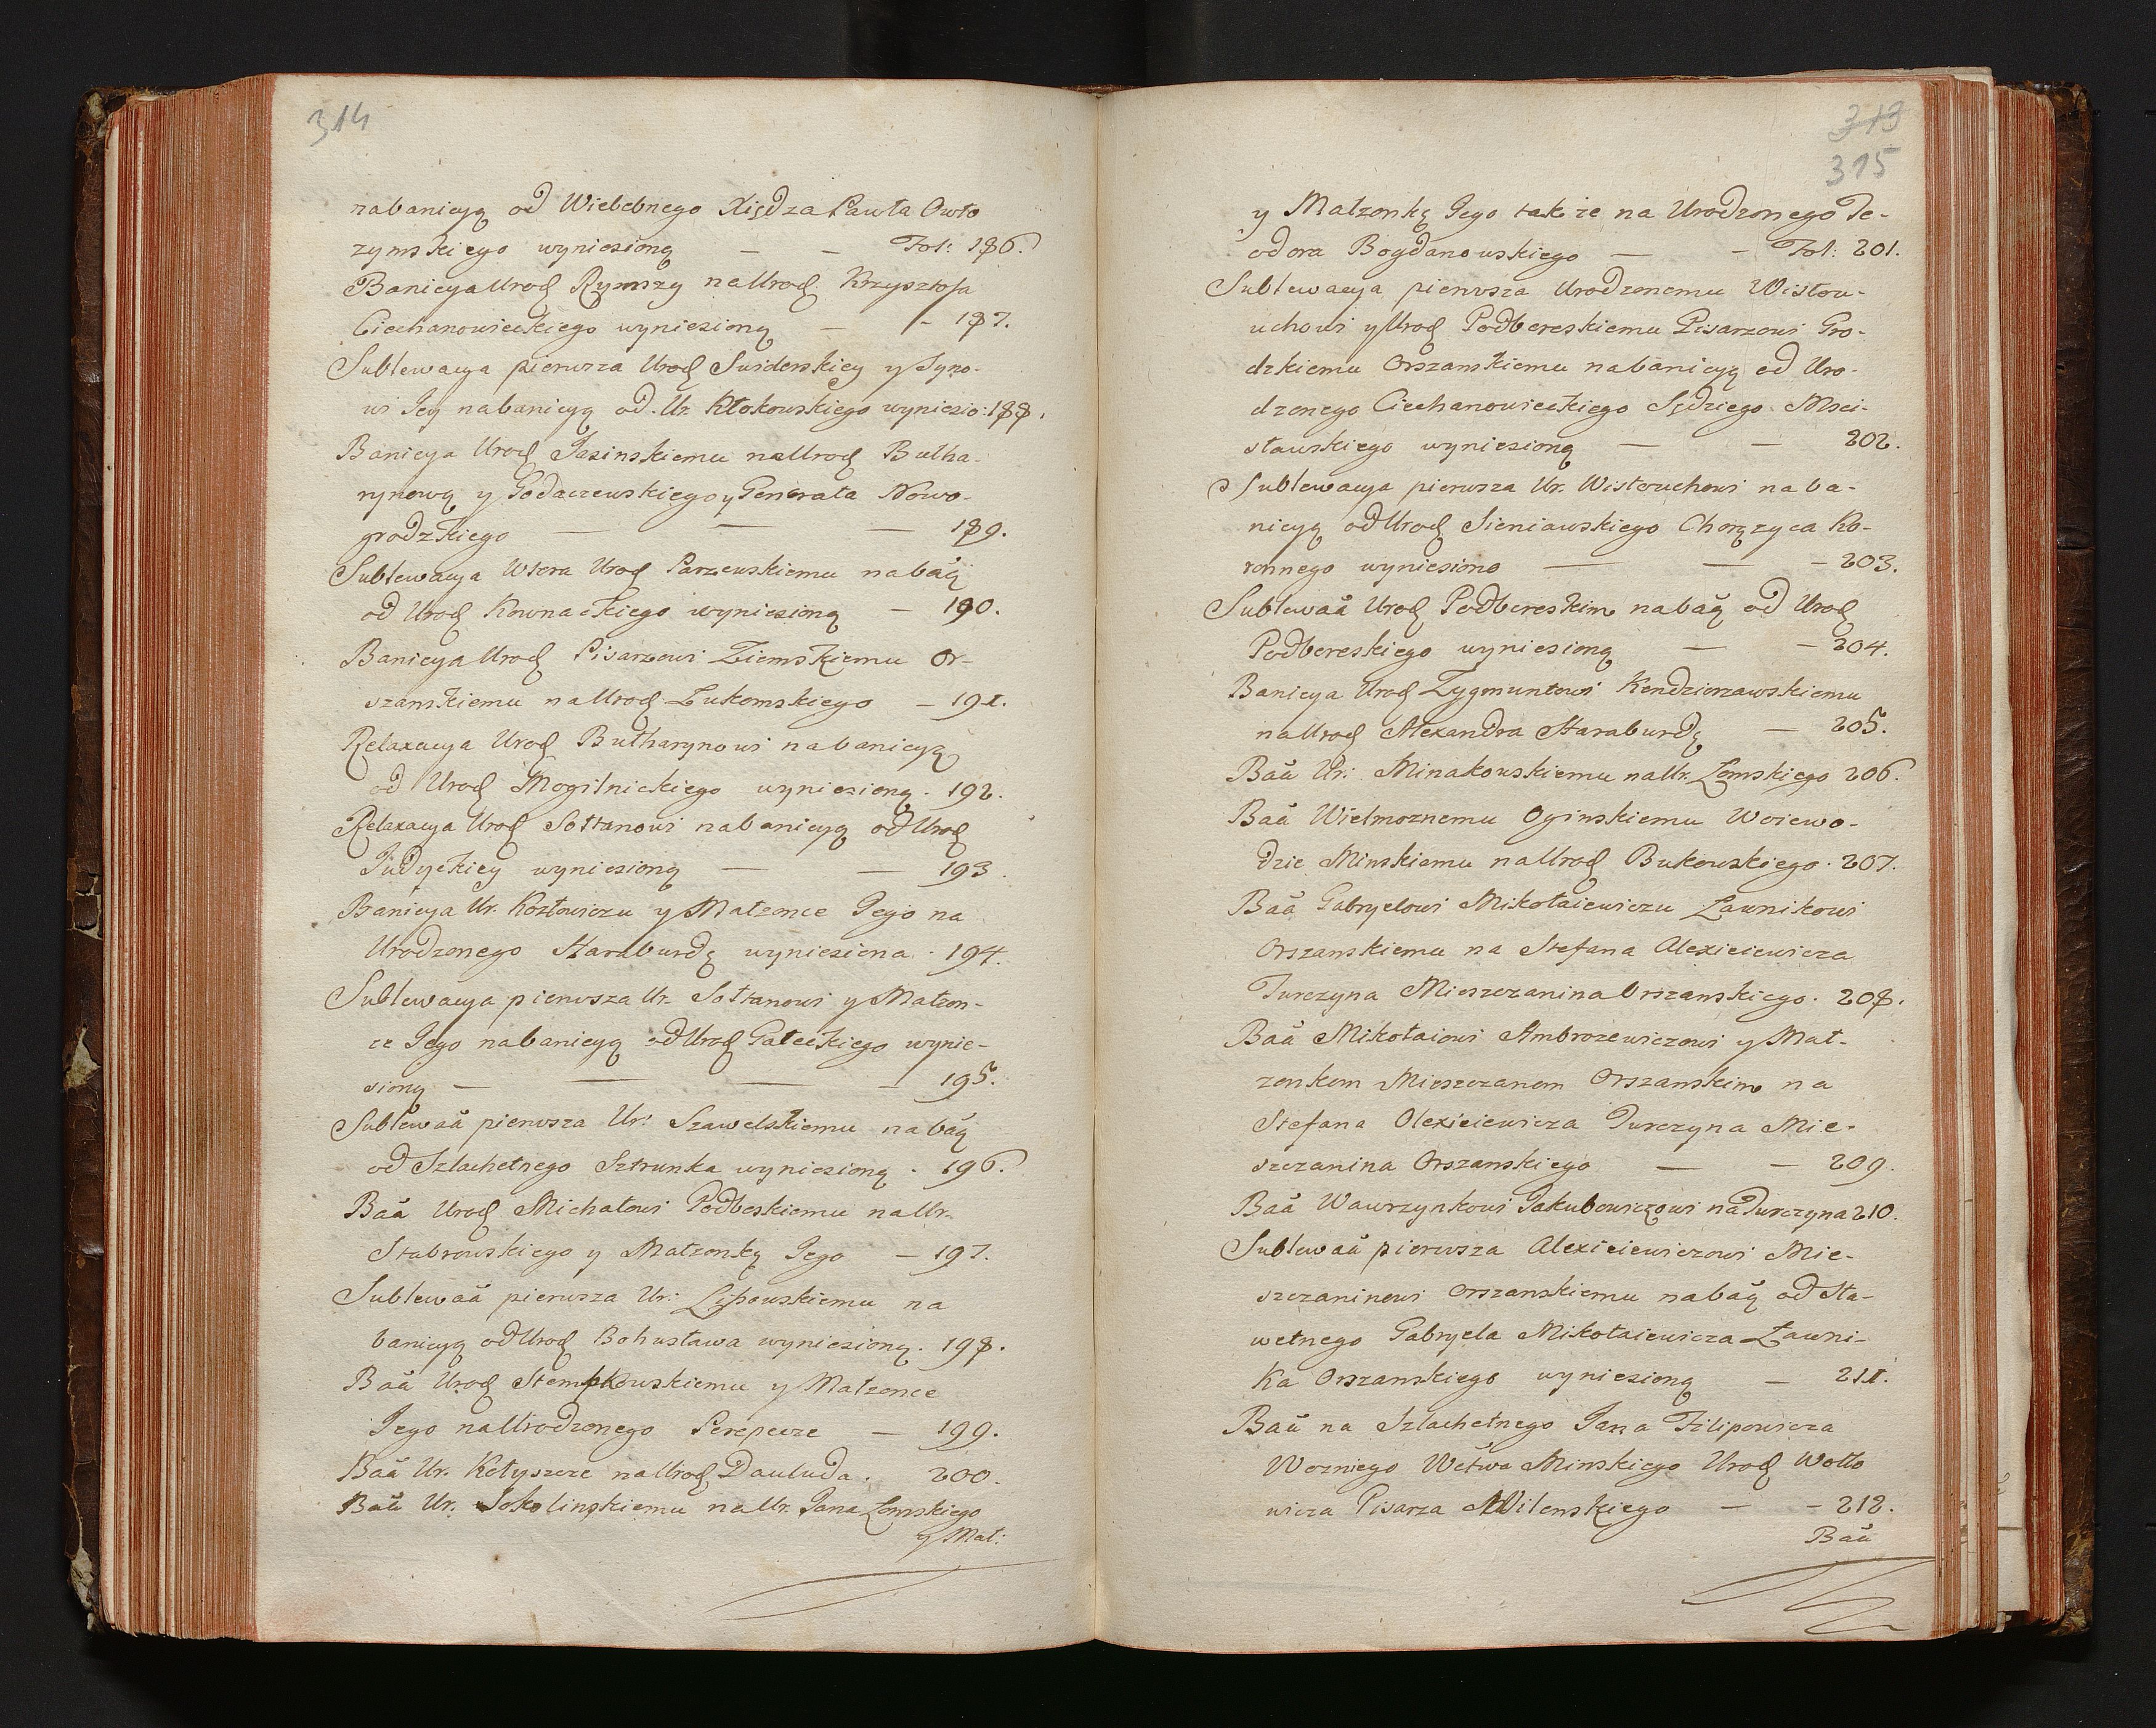 314
nabanicyą od Wielebnego Xiędza Pawła Owło
zymskiego wyniesioną — — Fol: 186.
Banicya Urod Rymszy na Urod. Krzysztofa
Ciechanowieckiego wyniesioną — - 187.
Sublewacya pierwsza Urod Swiderskiey y Syno-
wi Jey nabanicyą od Ur. Kłokowskiego wyniesio: 188.
Banicya Urod Jasinskiemu na Urod Bułha-
rynową y Godaczewskiego y Generała Nowo-
grodzkiego — — — 189.
Sublewacya wtora Urod Parzewskiemu nabãą
od Urod Kownackiego wyniesioną — 190.
Banicya Urod Pisarzowi Ziemskiemu Or-
szanskiemu na Urod Łukomskiego — 191.
Relaxacya Urod Bułharynowi nabanicyą
od Urod Mogilnickiego wyniesioną. 192.
Relaxacya Urod Sołtanowi nabanicyą od Urod
Judyckiey wyniesioną — — 193.
Banicya Ur. Kozłowiczu y Małzonce Jego na
Urodzonego Staraburdę wyniesiona. 194.
Sublewacya pierwsza Ur. Sołtanowi y Małzon-
ce Jego nabanicyą od Urod Gałeckiego wynie-
sioną — — — 195.
Sublewaã pierwsza Ur: Szawelskiemu nabãą
od Szlachetnego Sztrunka wyniesioną. 196.
Baã Urod Michałowi Podbeskiemu na Ur.
Stabrowskiego y Małzonkę Jego — 197.
Sublewaã pierwsza Ur: Lipowskiemu na
banicyą od Urod Bohusława wyniesioną. 198.
Baã Urod Stempkowskiemu y Małzonce
Jego na Urodzonego Perepecze — 199.
Baã Ur. Kotyszcze na Urod Dauluda. 200.
Baã Ur. Sokolinskiemu na Ur. Jana Łomskiego
y Mał:
313
315
y Małzonkę Jego także na Urodzonego Te-
odora Bogdanowskiego — - Fol: 201.
Sublewacya pierwsza Urodzonemu Wistou-
uchowi y Urod Podbereskiemu Pisarzowi Gro-
dzkiemu Orszanskiemu nabanicyą od Uro-
dzonego Ciechanowieckiego Sędziego Msci-
sławskiego wyniesioną — — 202.
Sublewacya pierwsza Ur. Wistouchowi naba-
nicyą od Urod Sieniawskiego Chorązyca Ko-
ronnego wyniesiono — — - 203.
Sublewaã Urod Podbereskim nabãą od Urod
Podbereskiego wyniesioną — - 204.
Banicya Urod Zygmuntowi Kendzierzawskiemu
na Urod Alexandra Staraburdę — 205.
Baã Ur: Minakowskiemu na Ur. Łomskiego 206.
Baã Wielmoznemu Oginskiemu Woiewo-
dzie Minskiemu na Urod Bukowskiego. 207.
Baã Gabryelowi Mikołaiewiczu Ławnikowi
Orszanskiemu na Stefana Alexieiewicza
Turczyna Mieszczanina Orszanskiego. 208.
Baã Mikołaiowi Ambrozewiczowi y Mał-
zonkom Mieszczanom Orszanskim na
Stefana Olexieiewicza Turczyna Mie-
szczanina Orszanskiego — — 209.
Baã Wawrzynkowi Jakubowiczowi na Turczyna 210.
Sublewaã pierwsza Alexieiewiczowi Mie-
szczaninowi Orszanskiemu nabãą od Sła-
wetnego Gabryela Mikołaiewicza Ławni-
ka Orszanskiego wyniesioną — 211.
Baã na Szlachetnego Jana Filipowicza
Wozniego Wẽtwa Minskiego Urod Wołło
wicza Pisarza Wilenskiego — - 212.
Baã